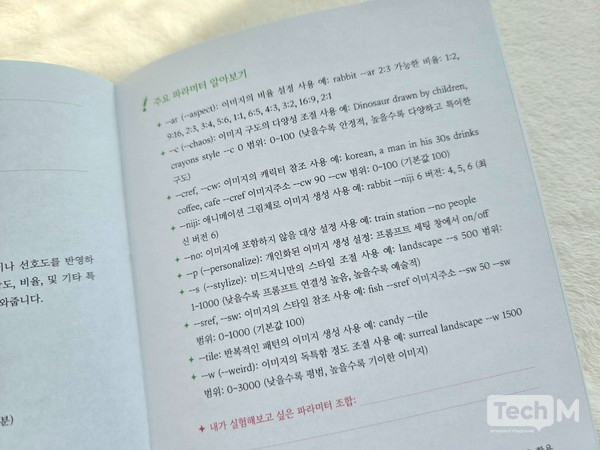 이나 선호도를 반영하
도, 비율, 및 기타 특
와줍니다.
분)
! 주요 파라미터 알아보기
--ar (--aspect): 이미지의 비율 설정 사용 예: rabbit --ar 2:3 가능한 비율: 1:2,
9:16, 2:3, 3:4, 5:6, 1:1, 6:5, 4:3, 3:2, 16:9, 2:1
--c (--chaos): 이미지 구도의 다양성 조절 사용 예: Dinosaur drawn by children,
crayons style --c 0 범위: 0~100 (낮을수록 안정적, 높을수록 다양하고 특이한
구도)
--cref, --cw: 이미지의 캐릭터 참조 사용 예: korean, a man in his 30s drinks
coffee, cafe --cref 이미지주소 --cw 90 --cw 범위: 0~100 (기본값 100)
--niji: 애니메이션 그림체로 이미지 생성 사용 예: rabbit --niji 6 버전: 4, 5, 6 (최
신 버전 6)
--no: 이미지에 포함하지 않을 대상 설정 사용 예: train station --no people
--p (--personalize): 개인화된 이미지 생성 설정: 프롬프트 세팅 창에서 on/off
--s (--stylize): 미드저니만의 스타일 조절 사용 예: landscape --s 500 범위:
1~1000 (낮을수록 프롬프트 연결성 높음, 높을수록 예술적)
--sref, --sw: 이미지의 스타일 참조 사용 예: fish --sref 이미지주소 --sw 50 --sw
범위: 0~1000 (기본값 100)
--tile: 반복적인 패턴의 이미지 생성 사용 예: candy --tile
--w (--weird): 이미지의 독특함 정도 조절 사용 예: surreal landscape --w 1500
범위: 0~3000 (낮을수록 평범, 높을수록 기이한 이미지)
내가 실험해보고 싶은 파라미터 조합:
TechM